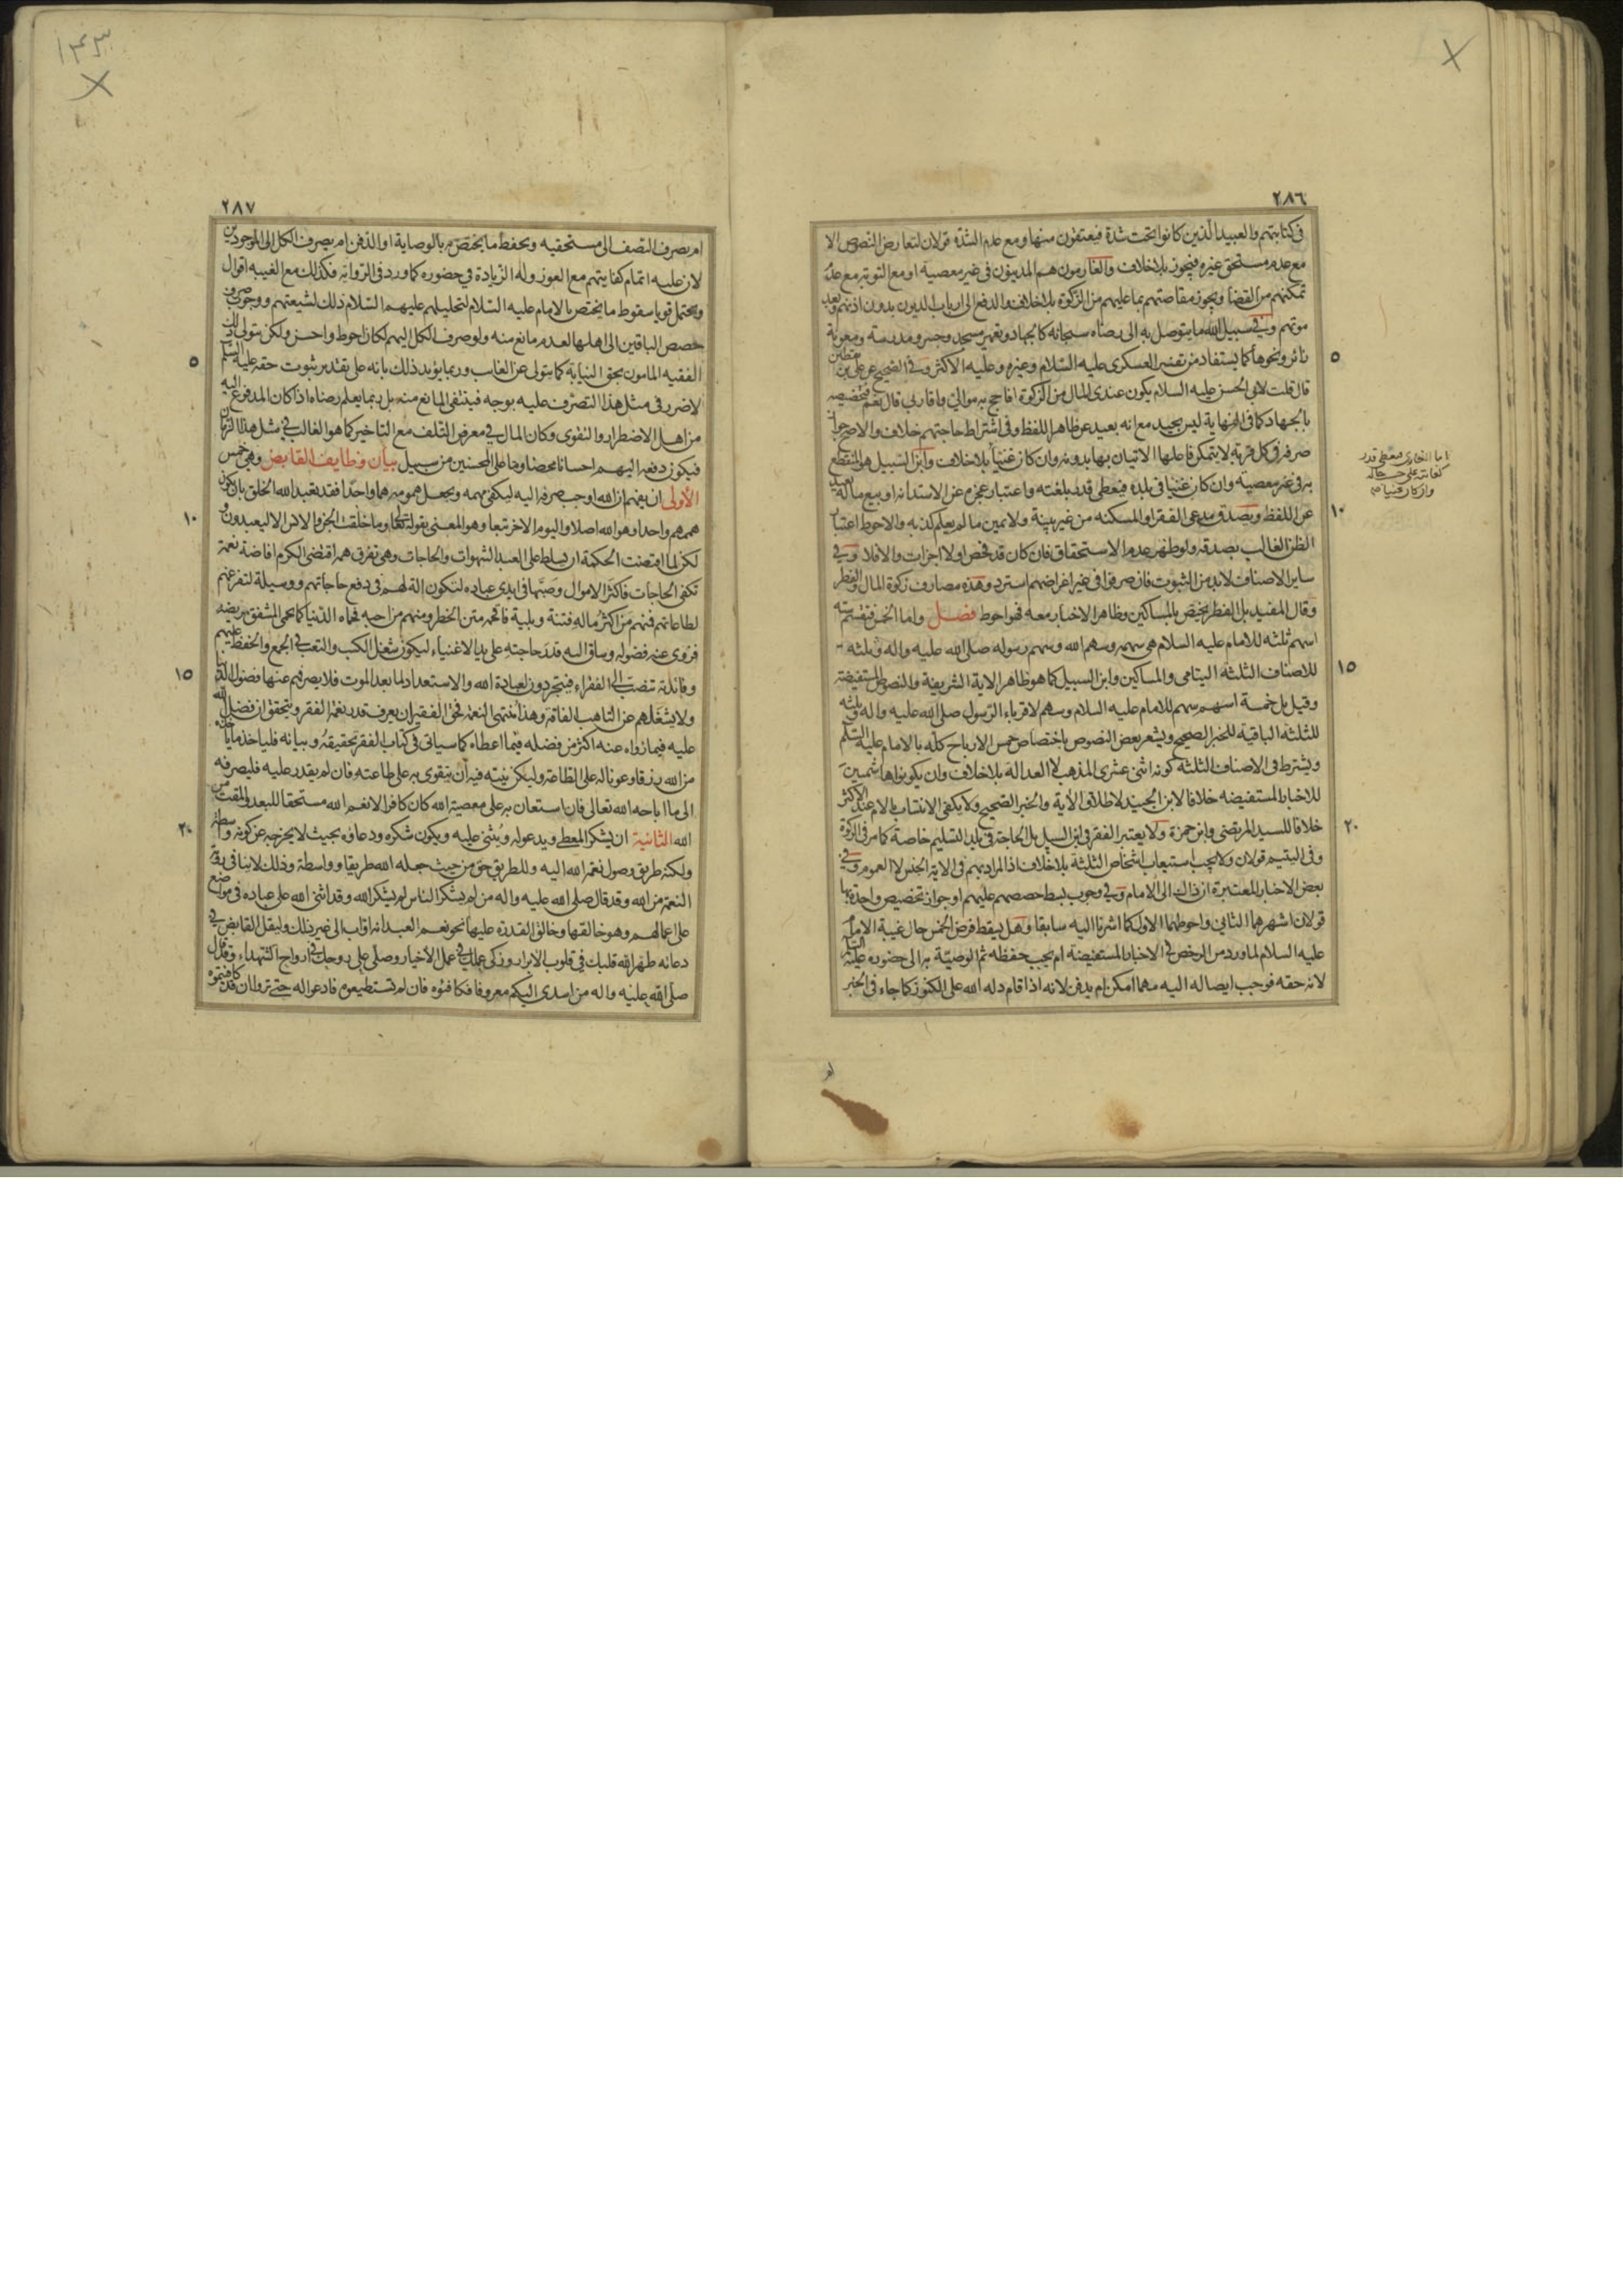 ٢٨٦
فى كتابتهم والعبيد الذين كانوا تحت شدة فيعتقون منها ومع عدم الشدة قولان لتعارض النصوص الا
مع عدم مستحق غيره فيجوز بلا خلاف والغارمون هم المدينون فى غير معصية او مع التوبة مع عدم
تمكنهم من القضا ويجوز مقاصتهم بما عليهم من الزكوة بلا خلاف والدفع الى ارباب الديون بدون اذنهم وبعد
موتهم وفى سبيل الله ما يتوصل به الى رضاه سبحانه كالجهاد وتعمير مسجد وجسر ومدرسة ومعونة
زائر ونحوها كما يستفاد من تفسير العسكرى عليه السلام وغيره وعليه الاكثر وفى الصحيح عن على بن يقطين
٥
قال قلت لابى الحسن عليه السلام يكون عندى المال من الزكوة افاحج به موالى واقاربى قال نعم فتخصيصه
بالجهاد كما فى النهاية ليس بجيد مع انه بعيد عن ظاهر اللفظ وفى اشتراط حاجتهم خلاف والاصح جواز
صرفه فى كل قربة لا يتمكن فاعلها الاتيان بها بدونه وان كان غنيا بلا خلاف وابن السبيل هو المنقطع
به فى غير معصية وان كان غنيا فى بلده فيعطى قدر بلغته واعتبار عجزه عن الاستدانة او بيع ماله بعيد
عن اللفظ ويصدق مدعى الفقر او المسكنه من غير بينة ولا يمين ما لم يعلم كذبه والاحوط اعتبار
١٠
الظن الغالب بصدقه ولو ظهر عدم الاستحقاق فان كان قد فحص اولا اجزات والا فلا وفى
ساير الاصناف لابد من الثبوت فان صرفوا فى غير اغراضهم استرد وهذه مصارف زكوة المال والفطر
وقال المفيد بل الفطر يختص بالمساكين وظاهر الاخبار معه فهو احوط فصل واما الخمس فيقسم ستة
اسهم ثلثه للامام عليه السلام هى سهمه وسهم الله وسهم رسوله صلى الله عليه واله وثلثه
للاصناف الثلثة اليتامى والمساكين وابن السبيل كما هو ظاهر الاية الشريفة والنصوص المستفيضة
١٥
وقيل بل خمسة اسهم سهم للامام عليه السلام وسهم لاقرباء الرسول صلى الله عليه واله وثلثه
للثلثة الباقية للخبر الصحيح ويشعر بعض النصوص باختصاص خمس الارباح كله بالامام عليه السلام
ويشترط فى الاصناف الثلثة كونه اثنى عشرى المذهب لا العدالة بلا خلاف وان يكونوا هاشميين
للاخبار المستفيضه خلافا لابن الجنيد لاطلاق الاية والخبر الصحيح ولا يكفى الانتساب بالام عند الاكثر
خلافا للسيد المرتضى وابن حمزة ولا يعتبر الفقر فى ابن السبيل بل الحاجة فى بلد التسليم خاصة كما مر فى الزكوة
٢٠
وفى اليتيم قولان ولا يجب استيعاب اشخاص الثلثة بلا خلاف اذ المراد بهم فى الاية الجنس لا العموم وفى
بعض الاخبار المعتبرة ان ذاك الى الامام وفى وجوب بسط حصصهم عليهم او جواز تخصيص واحد بها
قولان اشهرهما الثانى واحوطهما الاول كما اشرنا اليه سابقا وهل يسقط فرض الخمس حال غيبة الامام
عليه السلام لما ورد من الرخص فى الاخبار المستفيضة ام يجب حفظه ثم الوصية به الى حضوره عليه السلام
لانه حقه فوجب ايصاله اليه مهما امكن ام يدفن لانه اذا قام دله الله على الكنوز كما جاء فى الخبر
اما الغازى فيعطى قدر
كفايته على حسب حاله
وان كان غنيا
ام
٢٨٧
ام يصرف النصف الى مستحقيه ويحفظ ما يختص به بالوصاية او الدفن ام يصرف الكل الى الموجودين
لان عليه اتمام كفايتهم مع العوز وله الزيادة فى حضوره كما ورد فى الرواية فكذلك مع الغيبه اقوال
ويحتمل قويا سقوط ما يختص بالامام عليه السلام لتحليلهم عليهم السلام ذلك لشيعتهم ووجوب صرف
حصص الباقين الى اهلها لعدم مانع منه ولو صرف الكل اليهم لكان احوط واحسن ولكن يتولى ذلك
الفقيه المامون بحق النيابة كما يتولى عن الغائب وربما يؤيد ذلك بانه على تقدير ثبوت حقه عليه السلام
٥
لا ضرر فى مثل هذا التصرف عليه بوجه فينتفى المانع منه بل ربما يعلم رضاه اذا كان المدفوع اليه
من اهل الاضطرار والتقوى وكان المال فى معرض التلف مع التاخير كما هو الغالب فى مثل هذا الزمان
فيكون دفعه اليهم احسانا محضا وما على المحسنين من سبيل بيان وظايف القابض وهى خمس
الاولى ان يفهم ان الله اوجب صرفه اليه ليكفى مهمه ويجعل همومه هما واحدا فقد تعبد الله الخلق بان يكون
همهم واحدا وهو الله اصلا واليوم الاخر تبعا وهو المعنى بقوله تعالى وما خلقت الجن والانس الا ليعبدون و
١٠
لكن لما اقتضت الحكمة ان يسلط على العبد الشهوات والحاجات وهى تفرق همه اقتضى الكرم افاضة نعمة
تكفى الحاجات فاكثر الاموال وصبها فى ايدى عباده لتكون الة لهم فى دفع حاجاتهم ووسيلة لتفرغهم
لطاعاتهم فمنهم من اكثر ماله فتنة وبلية فاقحمه متن الخطر ومنهم من احبه فحماه الدنيا كما يحمى المشفق مريضه
فزوى عنه فضوله وساق اليه قدر حاجته على يد الاغنياء ليكون شغل الكسب والتعب فى الجمع والحفظ عليهم
وفائدته تنصب الى الفقراء فيتجردون لعبادة الله والاستعداد لما بعد الموت فلا يصرفهم عنها فضول الدنيا
١٥
ولا يشغلهم عن التاهب الفاقة وهذا منتهى النعمة فحق الفقير ان يعرف قدر نعمة الفقر ويتحقق ان فضل الله
عليه فيما زواه عنه اكثر من فضله فيما اعطاه كما سياتى فى كتاب الفقر تحقيقه وبيانه فلياخذ ما ياخذه
من الله رزقا وعونا له على الطاعة وليكن نيته فيه ان يتقوى به على طاعته فان لم يقدر عليه فليصرفه
الى ما اباحه الله تعالى فان استعان به على معصية الله كان كافرا لانعم الله مستحقا للبعد والمقت من
الله الثانية ان يشكر المعطى ويدعو له ويثنى عليه ويكون شكره ودعاؤه بحيث لا يخرجه عن كونه واسطة
٢٠
ولكنه طريق وصول نعمة الله اليه وللطريق حق من حيث جعله الله طريقا وواسطة وذلك لا ينافى رؤية
النعمة من الله وقد قال صلى الله عليه واله من لم يشكر الناس لم يشكر الله وقد اثنى الله على عباده فى مواضع
على اعمالهم وهو خالقها وخالق القدرة عليها نحو نعم العبد انه اواب الى غير ذلك وليقل القابض فى
دعائه طهر الله قلبك فى قلوب الابرار وزكى عملك فى عمل الاخيار وصلى على روحك فى ارواح الشهداء وقد قال
صلى الله عليه واله من اسدى اليكم معروفا فكافئوه فان لم تستطيعوا فادعوا له حتى تروا ان قد كافيتموه
١٤٣